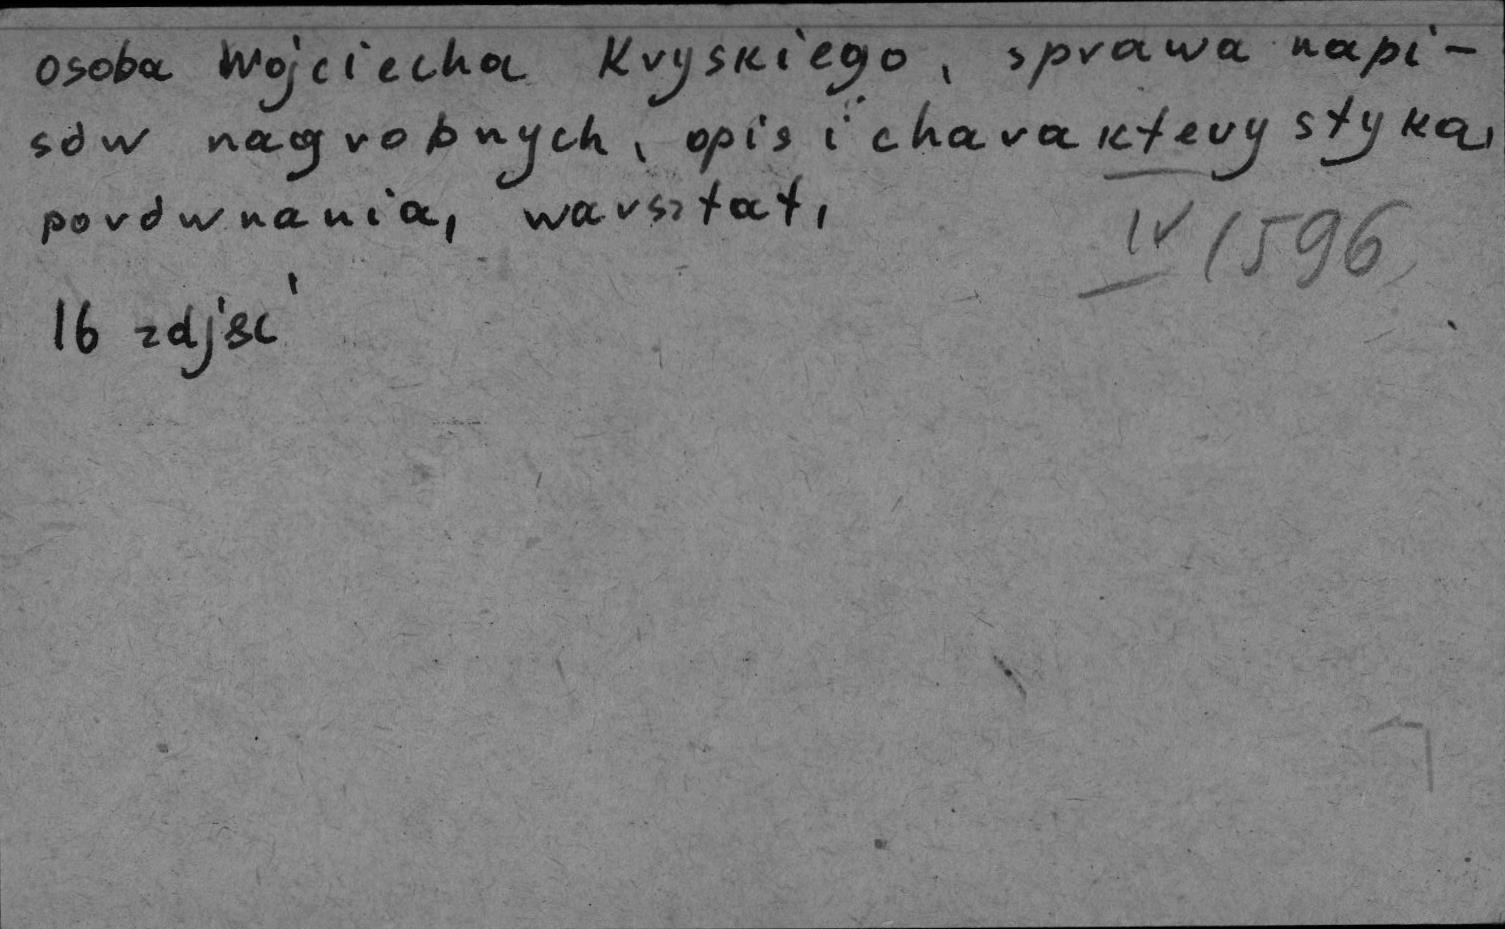 osoba Wojciecha Kryskiego, sprawa napi-
sów nagrobnych, opis i charakterystyka,
porównania, warsztat,
IV 1596
16 zdjęć